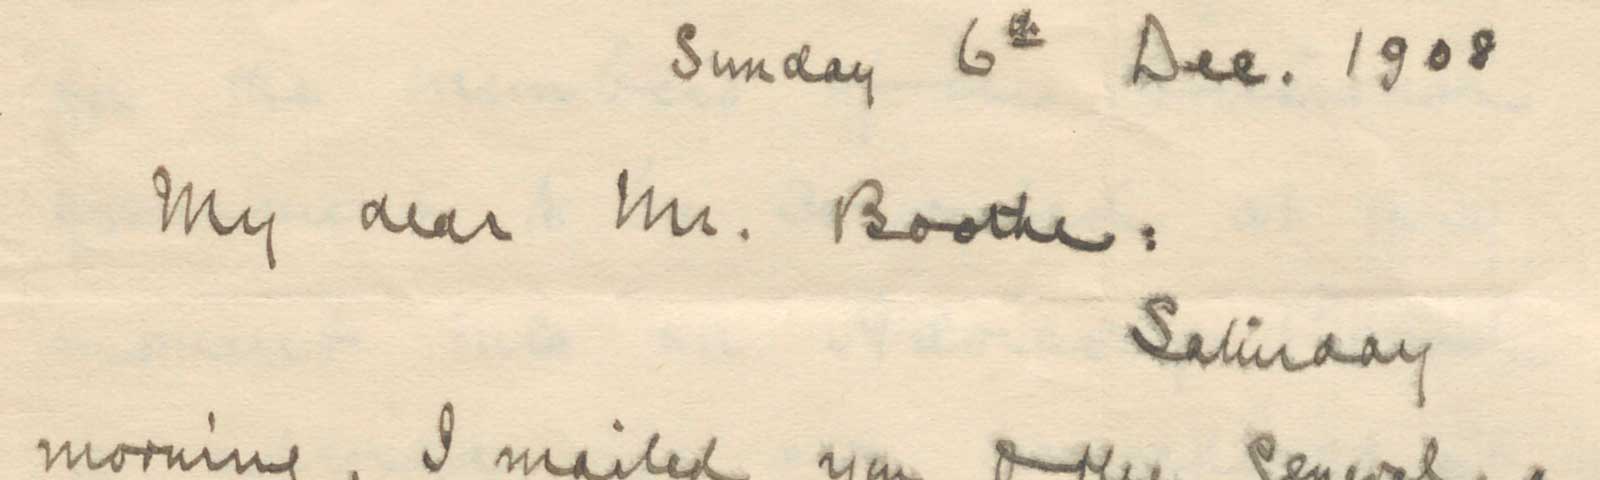 Sunday 6th Dec. 1908
My dear Mr. Boothe:
Saturday
morning, I mailed you & the General, a